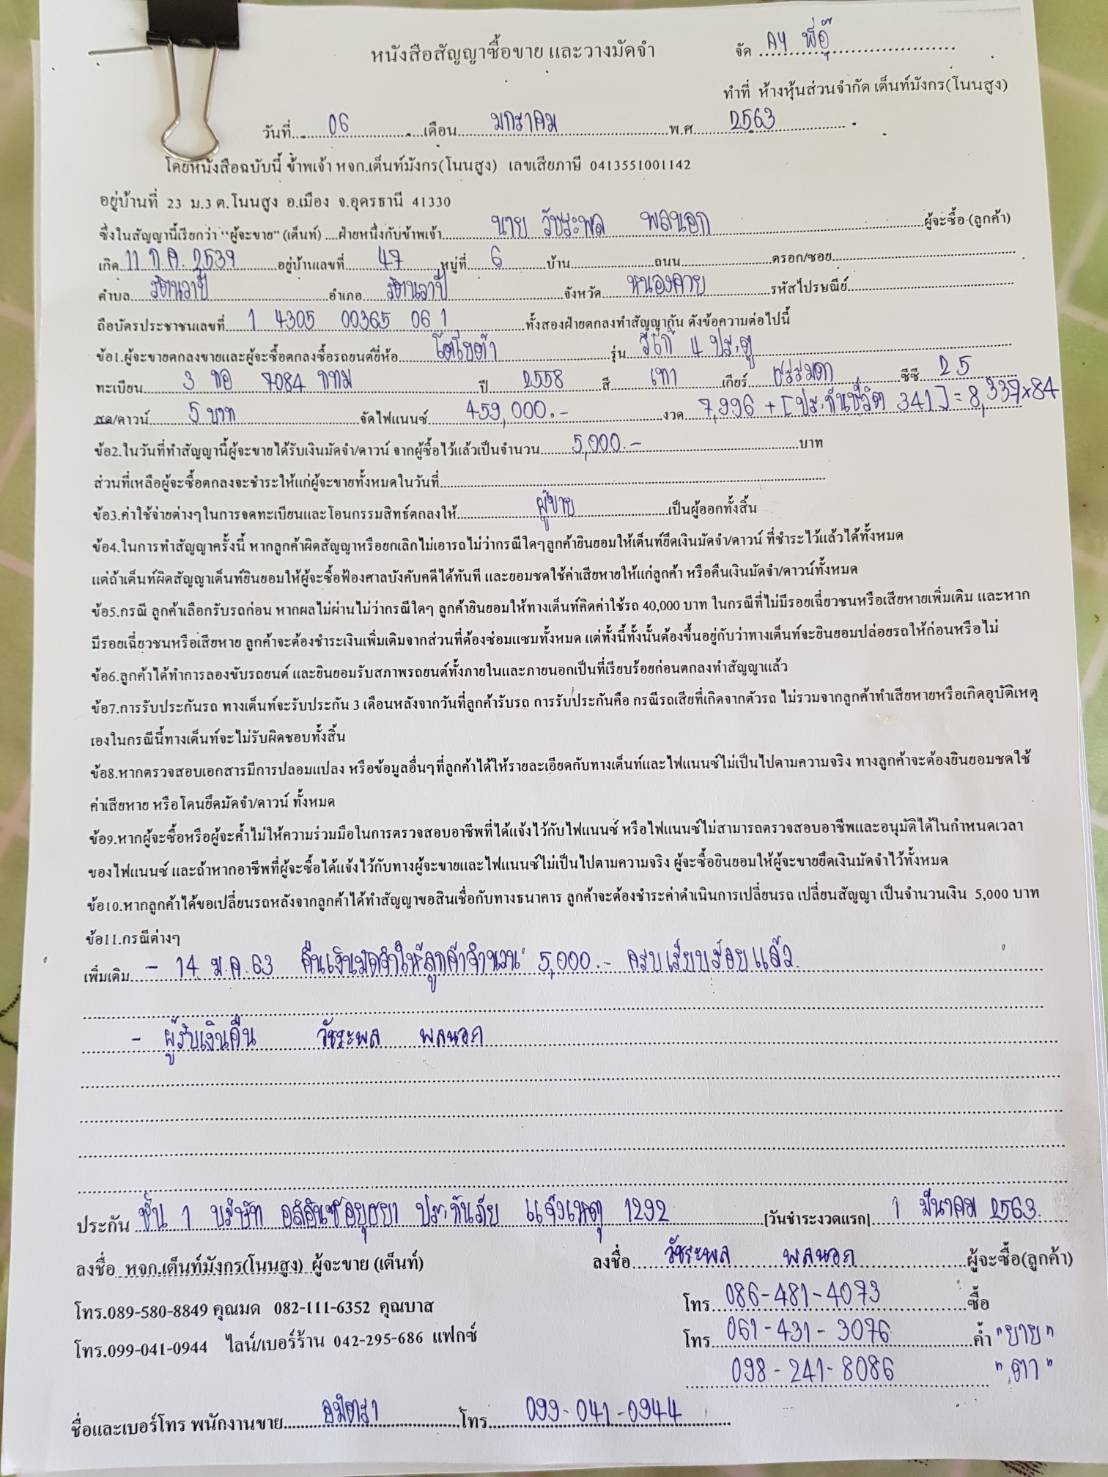 หนังสือสัญญาซื้อขาย และวางมัดจำ
จัด AY พี่อุ๊
ทำที่ ห้างหุ้นส่วนจำกัด เต็นท์มังกร(โนนสูง)
วันที่ 06 เดือน มกราคม พ.ศ. 2563
โดยหนังสือฉบับนี้ ข้าพเจ้า หจก.เต็นท์มังกร(โนนสูง) เลขเสียภาษี 0413551001142
อยู่บ้านที่ 23 ม.3 ต.โนนสูง อ.เมือง จ.อุดรธานี 41330
ซึ่งในสัญญานี้เรียกว่า "ผู้จะขาย" (เต็นท์) ....ฝ่ายหนึ่งกับข้าพเจ้า นาย วัชระพล พลนอก ผู้จะซื้อ (ลูกค้า)
เกิด 11 ก.ค. 2539 อยู่บ้านเลขที่ 47 หมู่ที่ 6 บ้าน ถนน ตรอก/ซอย
ตำบล รัตนวาปี อำเภอ รัตนวาปี จังหวัด หนองคาย รหัสไปรษณีย์
ถือบัตรประชาชนเลขที่ 1 4305 00365 06 1 ทั้งสองฝ่ายตกลงทำสัญญากัน ดังข้อความต่อไปนี้
ข้อ1.ผู้จะขายตกลงขายและผู้จะซื้อตกลงซื้อรถยนต์ยี่ห้อ โตโยต้า รุ่น วีโก้ 4 ประตู
ทะเบียน 3 ฒอ 7084 กทม ปี 2558 สี เทา เกียร์ ธรรมดา ซีซี 25
สด/ดาวน์ 5 บาท จัดไฟแนนซ์ 459,000.- งวด 7,996 + [ประกันชีวิต 341] = 8,337 x 84
ข้อ2.ในวันที่ทำสัญญานี้ผู้จะขายได้รับเงินมัดจำ/ดาวน์ จากผู้ซื้อไว้แล้วเป็นจำนวน 5,000.- บาท
ส่วนที่เหลือผู้จะซื้อตกลงจะชำระให้แก่ผู้จะขายทั้งหมดในวันที่
ข้อ3.ค่าใช้จ่ายต่างๆในการจดทะเบียนและโอนกรรมสิทธิ์ตกลงให้ ผู้ขาย เป็นผู้ออกทั้งสิ้น
ข้อ4.ในการทำสัญญาครั้งนี้ หากลูกค้าผิดสัญญาหรือยกเลิกไม่เอารถไม่ว่ากรณีใดๆลูกค้ายินยอมให้เต็นท์ยึดเงินมัดจำ/ดาวน์ ที่ชำระไว้แล้วได้ทั้งหมด
แต่ถ้าเต็นท์ผิดสัญญาเต็นท์ยินยอมให้ผู้จะซื้อฟ้องศาลบังคับคดีได้ทันที และยอมชดใช้ค่าเสียหายให้แก่ลูกค้า หรือคืนเงินมัดจำ/ดาวน์ทั้งหมด
ข้อ5.กรณี ลูกค้าเลือกรับรถก่อน หากผลไม่ผ่านไม่ว่ากรณีใดๆ ลูกค้ายินยอมให้ทางเต็นท์คิดค่าใช้รถ 40,000 บาท ในกรณีที่ไม่มีรอยเฉี่ยวชนหรือเสียหายเพิ่มเติม และหาก
มีรอยเฉี่ยวชนหรือเสียหาย ลูกค้าจะต้องชำระเงินเพิ่มเติมจากส่วนที่ต้องซ่อมแซมทั้งหมด แต่ทั้งนี้ทั้งนั้นต้องขึ้นอยู่กับว่าทางเต็นท์จะยินยอมปล่อยรถให้ก่อนหรือไม่
ข้อ6.ลูกค้าได้ทำการลองขับรถยนต์ และยินยอมรับสภาพรถยนต์ทั้งภายในและภายนอกเป็นที่เรียบร้อยก่อนตกลงทำสัญญาแล้ว
ข้อ7.การรับประกันรถ ทางเต็นท์จะรับประกัน 3 เดือนหลังจากวันที่ลูกค้ารับรถ การรับประกันคือ กรณีรถเสียที่เกิดจากตัวรถ ไม่รวมจากลูกค้าทำเสียหายหรือเกิดอุบัติเหตุ
เองในกรณีนี้ทางเต็นท์จะไม่รับผิดชอบทั้งสิ้น
ข้อ8.หากตรวจสอบเอกสารมีการปลอมแปลง หรือข้อมูลอื่นๆที่ลูกค้าได้ให้รายละเอียดกับทางเต็นท์และไฟแนนซ์ไม่เป็นไปตามความจริง ทางลูกค้าจะต้องยินยอมชดใช้
ค่าเสียหาย หรือโดนยึดมัดจำ/ดาวน์ ทั้งหมด
ข้อ9.หากผู้จะซื้อหรือผู้จะค้ำไม่ให้ความร่วมมือในการตรวจสอบอาชีพที่ได้แจ้งไว้กับไฟแนนซ์ หรือไฟแนนซ์ไม่สามารถตรวจสอบอาชีพและอนุมัติได้ในกำหนดเวลา
ของไฟแนนซ์ และถ้าหากอาชีพที่ผู้จะซื้อได้แจ้งไว้กับทางผู้จะขายและไฟแนนซ์ไม่เป็นไปตามความจริง ผู้จะซื้อยินยอมให้ผู้จะขายยึดเงินมัดจำไว้ทั้งหมด
ข้อ10.หากลูกค้าได้ขอเปลี่ยนรถหลังจากลูกค้าได้ทำสัญญาขอสินเชื่อกับทางธนาคาร ลูกค้าจะต้องชำระค่าดำเนินการเปลี่ยนรถ เปลี่ยนสัญญา เป็นจำนวนเงิน 5,000 บาท
ข้อ11.กรณีต่างๆ
เพิ่มเติม - 14 ม.ค. 63 คืนเงินมัดจำให้ลูกค้าจำนวน 5,000.- ครบเรียบร้อยแล้ว
- ผู้รับเงินคืน วัชระพล พลนอก
ประกัน ชั้น 1 บริษัท อลิอันซ์อยุธยา ประกันภัย แจ้งเหตุ 1292 [วันชำระงวดแรก] 1 มีนาคม 2563
ลงชื่อ หจก.เต็นท์มังกร(โนนสูง) ผู้จะขาย (เต็นท์) ลงชื่อ วัชระพล พลนอก ผู้จะซื้อ(ลูกค้า)
โทร.089-580-8849 คุณมด 082-111-6352 คุณบาส โทร 086-481-4073 ซื้อ
โทร.099-041-0944 ไลน์/เบอร์ร้าน 042-295-686 แฟกซ์ โทร 061-431-3076 ค้ำ "ยาย"
098-241-8086 "ตา"
ชื่อและเบอร์โทร พนักงานขาย โทร 099-041-0944